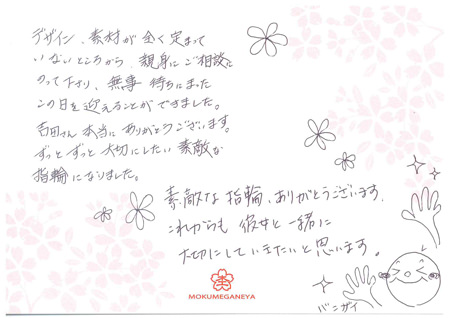 デザイン、素材が全く定まって
いないところから、親身にご相談に
のって下さり、無事 待ちにまった
この日を迎えることができました。
吉田さん 本当に ありがとうございます。
ずっとずっと 大切にしたい 素敵な
指輪になりました。
素敵な指輪、ありがとうございます。
これからも 彼女と一緒に
大切にしていきたいと思います。
バンザイ
MOKUMEGANEYA